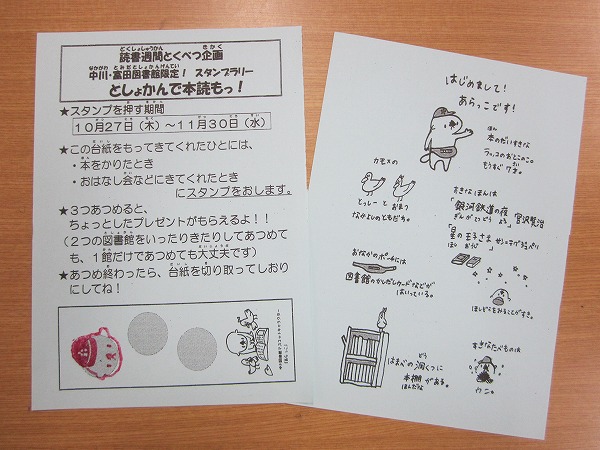 どくしょしゅうかん きかく
読書週間とくべつ企画
なかがわ とみだとしょかんげんてい
中川・富田図書館限定! スタンプラリー
としょかんで本読もっ!
★スタンプを押す期間
10月27日(木)～11月30日(水)
★この台紙をもってきてくれたひとには、
・本をかりたとき
・おはなし会などにきてくれたとき
にスタンプをおします。
★3つあつめると、
ちょっとしたプレゼントがもらえるよ!!
(2つの図書館をいったりきたりしてあつめて
も、1館だけであつめても大丈夫です)
★あつめ終わったら、台紙を切り取ってしおり
にしてね!
はじめまして!
あらっこです!
ほん
本のだいすきな
ラッコのおとこのこ。
もうすぐ7才。
カモメの
とっしーと おまつ
なかよしのともだち。
すきなほんは
「銀河鉄道の夜」宮沢賢治
ぎんがてつどう よる
「星の王子さま」サン=テグジュペリ
ほし おうじ
おなかのポーチには
図書館のかしだしカードなどが
はいっている。
ほしぞらをみることがすき。
はまべの洞くつに
どう
本棚がある。
ほんだな
すきなたべものは
ウニ。